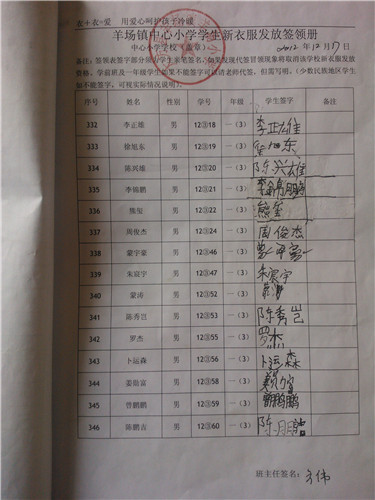 衣+衣=爱 用爱心呵护孩子冷暖
羊场镇中心小学学生新衣服发放签领册
中心小学学校（盖章） 2012年12月17日
备注：签领表签字部分须由学生来笔签名，如果发现代签冒领现象将取消该学校新衣服发放
资格。学前班及一年级学生如果不能签字可以请老师代签，但需写明。（少数民族地区学生
如不能签字，可视实际情况说明）
序号 姓名 性别 学号 年级 学生签字 备注
332 李正雄 男 12③18 一（3） 李正雄
333 徐旭东 男 12③19 一（3） 徐旭东
334 陈兴雄 男 12③20 一（3） 陈兴雄
335 李锦鹏 男 12③21 一（3） 李锦鹏
336 熊玺 男 12③22 一（3） 熊玺
337 周俊杰 男 12③24 一（3） 周俊杰
338 蒙字豪 男 12③46 一（3）
339 朱宸宇 男 12③47 一（3） 朱宸宇
340 蒙涛 男 12③52 一（3）
341 陈秀岂 男 12③53 一（3） 陈秀岂
342 罗杰 男 12③55 一（3） 罗杰
343 卜运森 男 12③56 一（3） 卜运森
344 姜勋富 男 12③58 一（3）
345 曾鹏鹏 男 12③59 一（3） 曾鹏鹏
346 陈鹏吉 男 12③60 一（3） 陈鹏吉
班主任签名：方伟